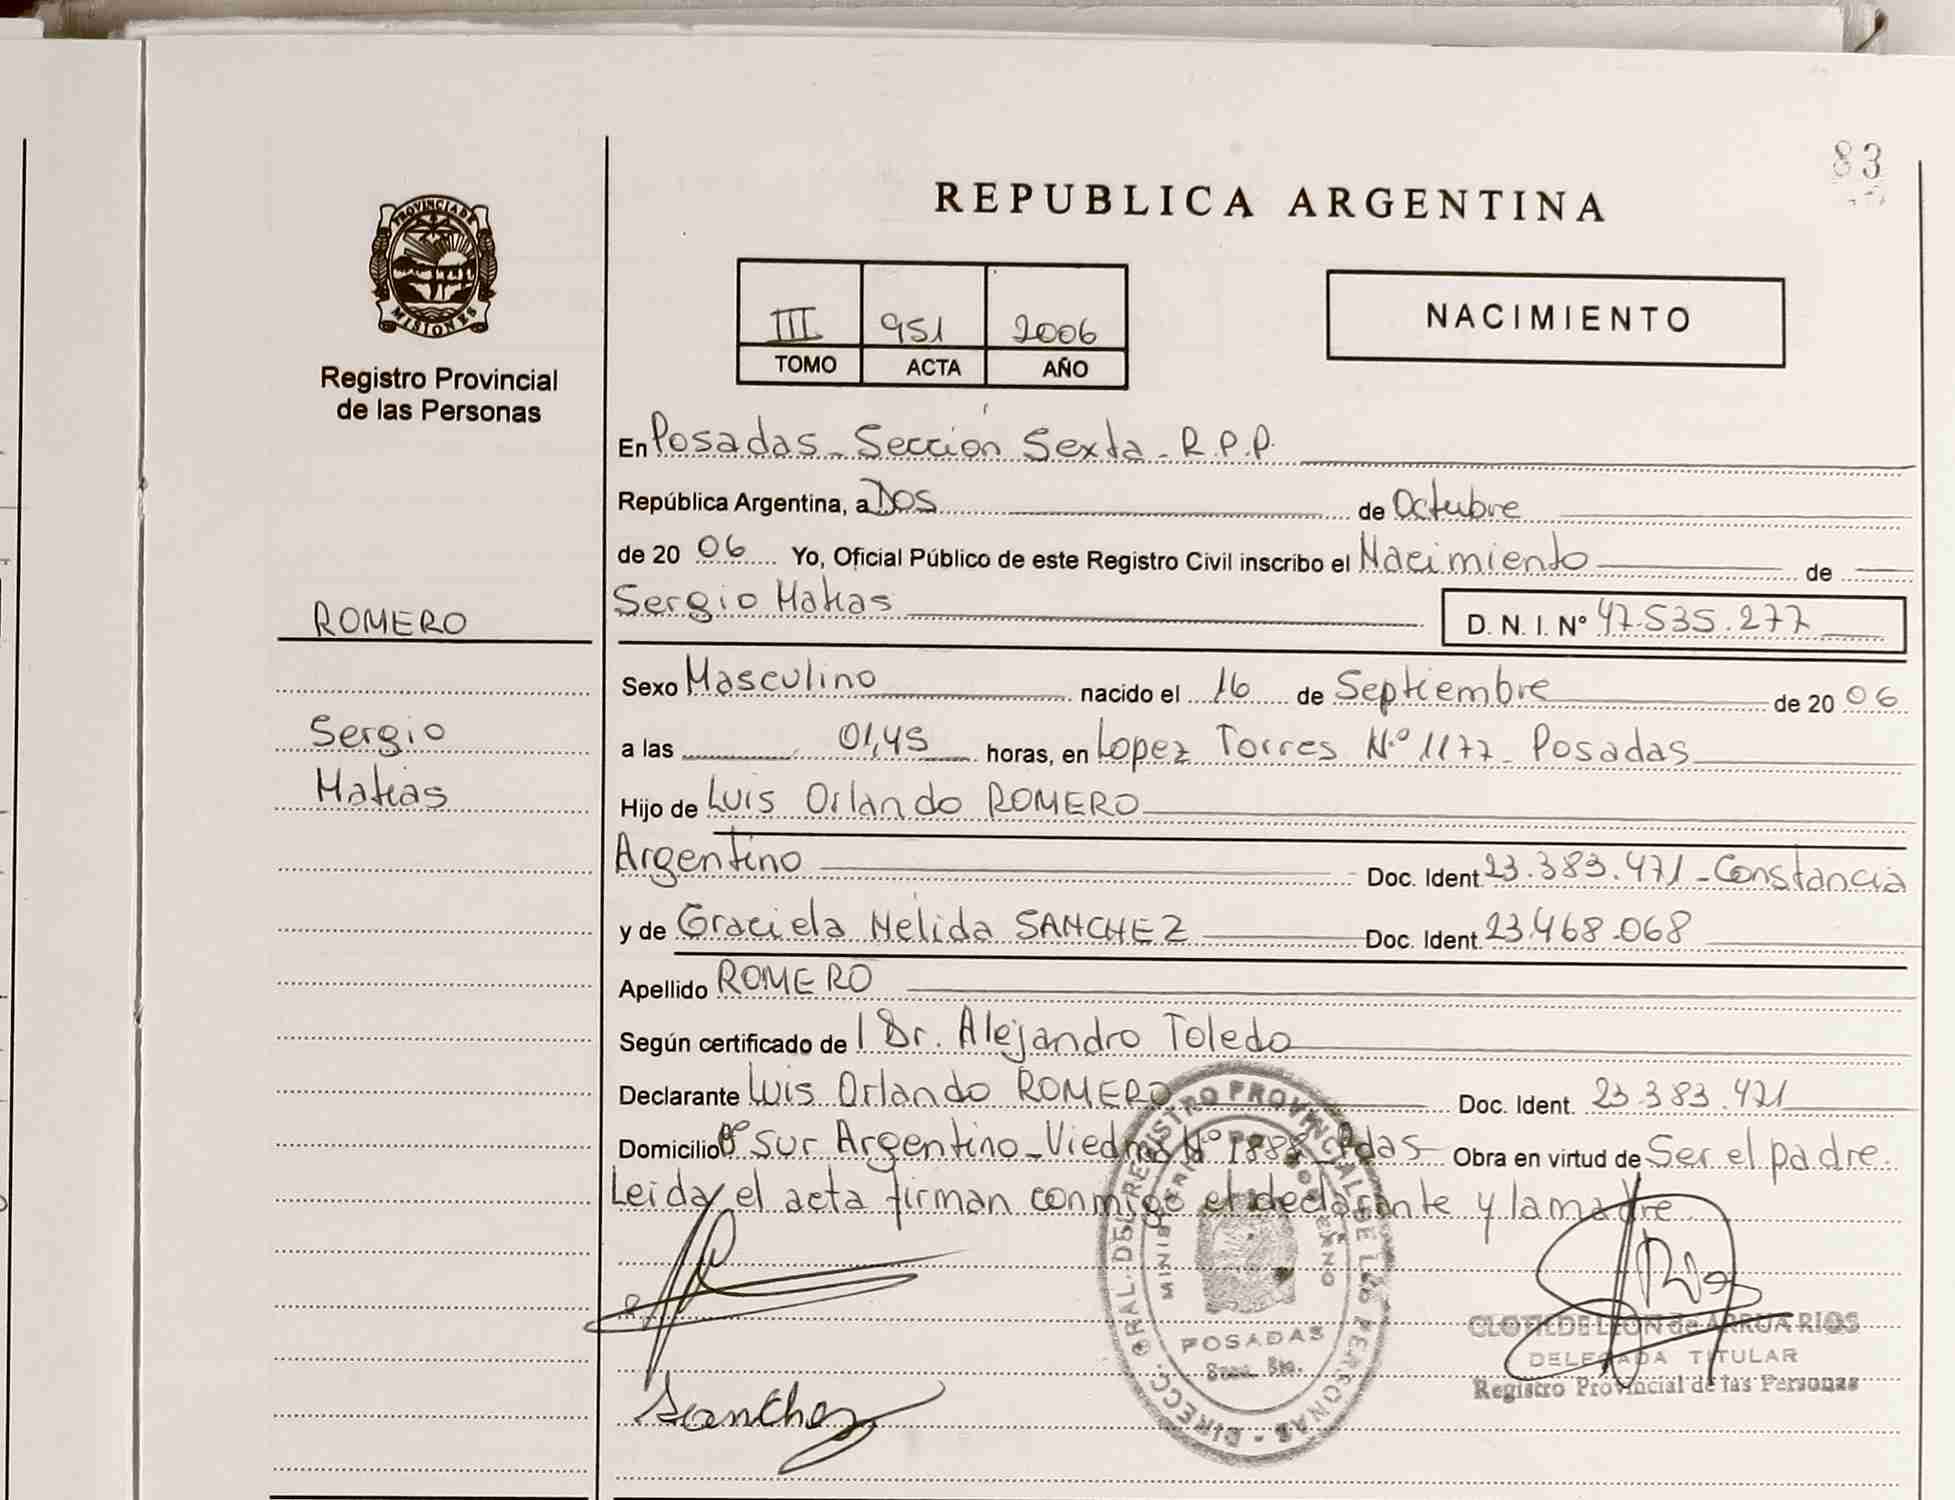 83
REPUBLICA ARGENTINA
PROVINCIA DE
MISIONES
Registro Provincial
de las Personas
III 951 2006
TOMO ACTA AÑO
NACIMIENTO
En Posadas - Sección Sexta - R.P.P.
República Argentina, a Dos de Octubre
de 20 06 Yo, Oficial Público de este Registro Civil inscribo el Nacimiento de
ROMERO
Sergio Matias
D. N. I. Nº 47.535.277
Sexo Masculino nacido el 16 de Septiembre de 20 06
Sergio
a las 01,45 horas, en Lopez Torres N.º 1177 - Posadas
Matias
Hijo de Luis Orlando ROMERO
Argentino Doc. Ident. 23.383.471 - Constancia
y de Graciela Nélida SANCHEZ Doc. Ident. 23.468.068
Apellido ROMERO
Según certificado de l Dr. Alejandro Toledo
Declarante Luis Orlando ROMERO Doc. Ident. 23.383.471
Domicilio Bº Sur Argentino - Viedma Nº 1888 - Pdas Obra en virtud de Ser el padre.
Leida el acta firman conmigo el declarante y la madre
DIRECC. GRAL. DEL REGISTRO PROVINCIAL DE LAS PERSONAS
MINISTERIO DE GOBIERNO
POSADAS
Secc. 6ta.
CLOTILDE LEON de ARRUA RIOS
DELEGADA TITULAR
Registro Provincial de las Personas
Sanchez